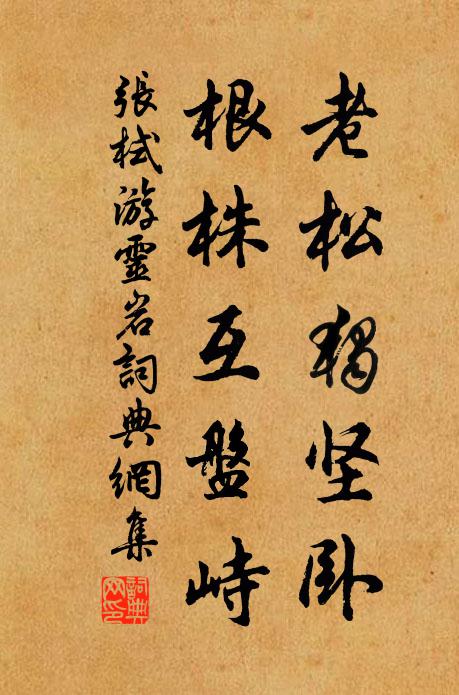 老松獨坚卧
根株互盤峙
張栻游靈岩詞典網集
詞典網印